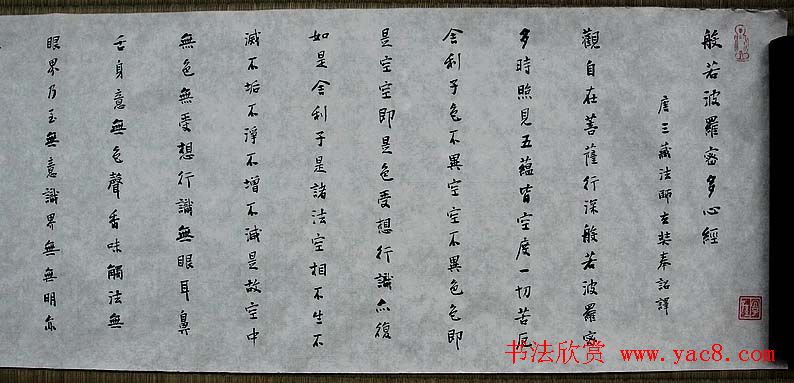 般若波羅密多心經
唐三藏法師玄奘奉詔譯
觀自在菩薩行深般若波羅密
多時照見五蘊皆空度一切苦厄
舍利子色不異空空不異色色即
是空空即是色受想行識亦復
如是舍利子是諸法空相不生不
滅不垢不淨不增不減是故空中
無色無受想行識無眼耳鼻
舌身意無色聲香味觸法無
眼界乃至無意識界無無明亦
书法欣赏 www.yac8.com